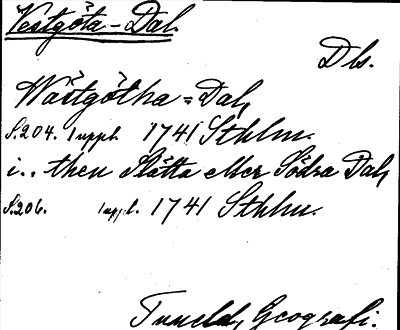 Västgöta-Dal.
Dls.
Wästgötha=Dal,
S.204. 1 uppl. 1741 Sthlm.
i.. then Slätta eller Södra Dal,
S.206. 1 uppl. 1741 Sthlm.
Tuneld, Geografi.